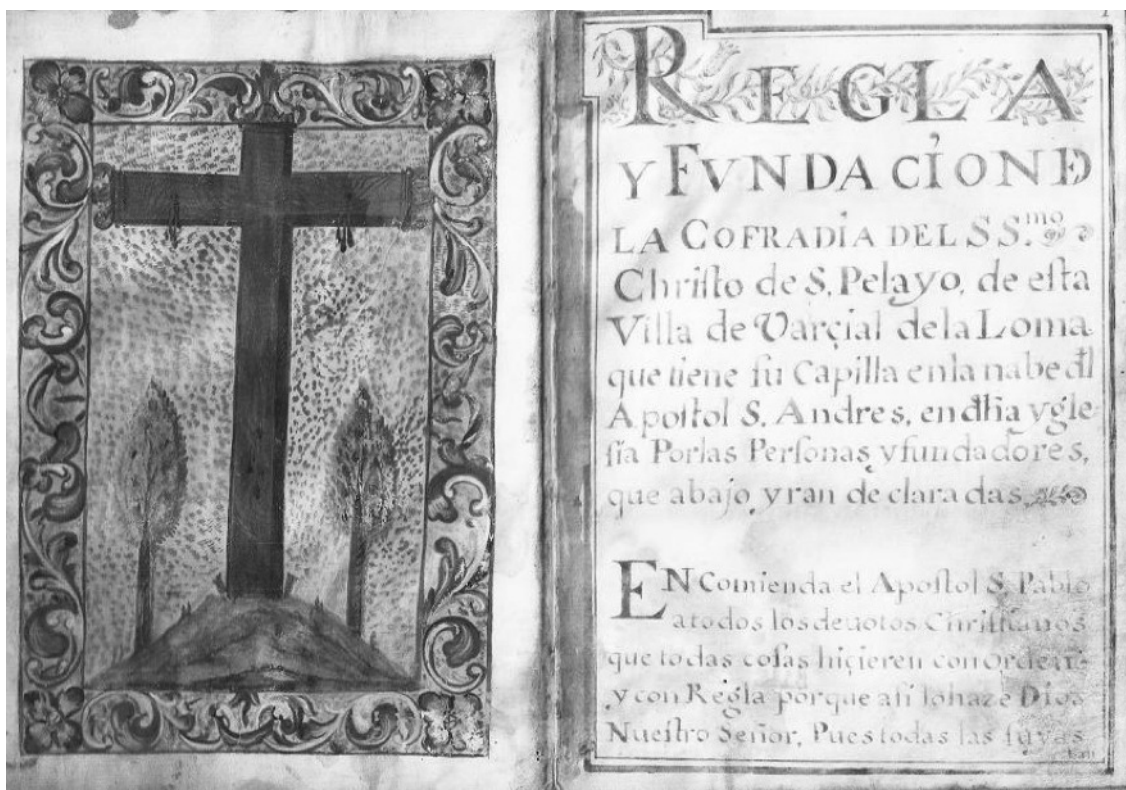 1
REGLA
Y FVNDACION DE
LA COFRADIA DEL S S.mo
Chriſto de S. Pelayo, de eſta
Villa de Varçial dela Loma
que tiene ſu Capilla enla nabe dl
Apoſtol S. Andres, en dhа ygle
ſia Porlas Perſonas y fundadores,
que abajo yran de claradas
EN Comienda el Apoſtol S. Pablo
atodos los deuotos Chriſtianos
que todas coſas hiçieren con orden
y con Regla porque aſi lo haze Dios
Nueſtro Señor, Pues todas las ſuyas